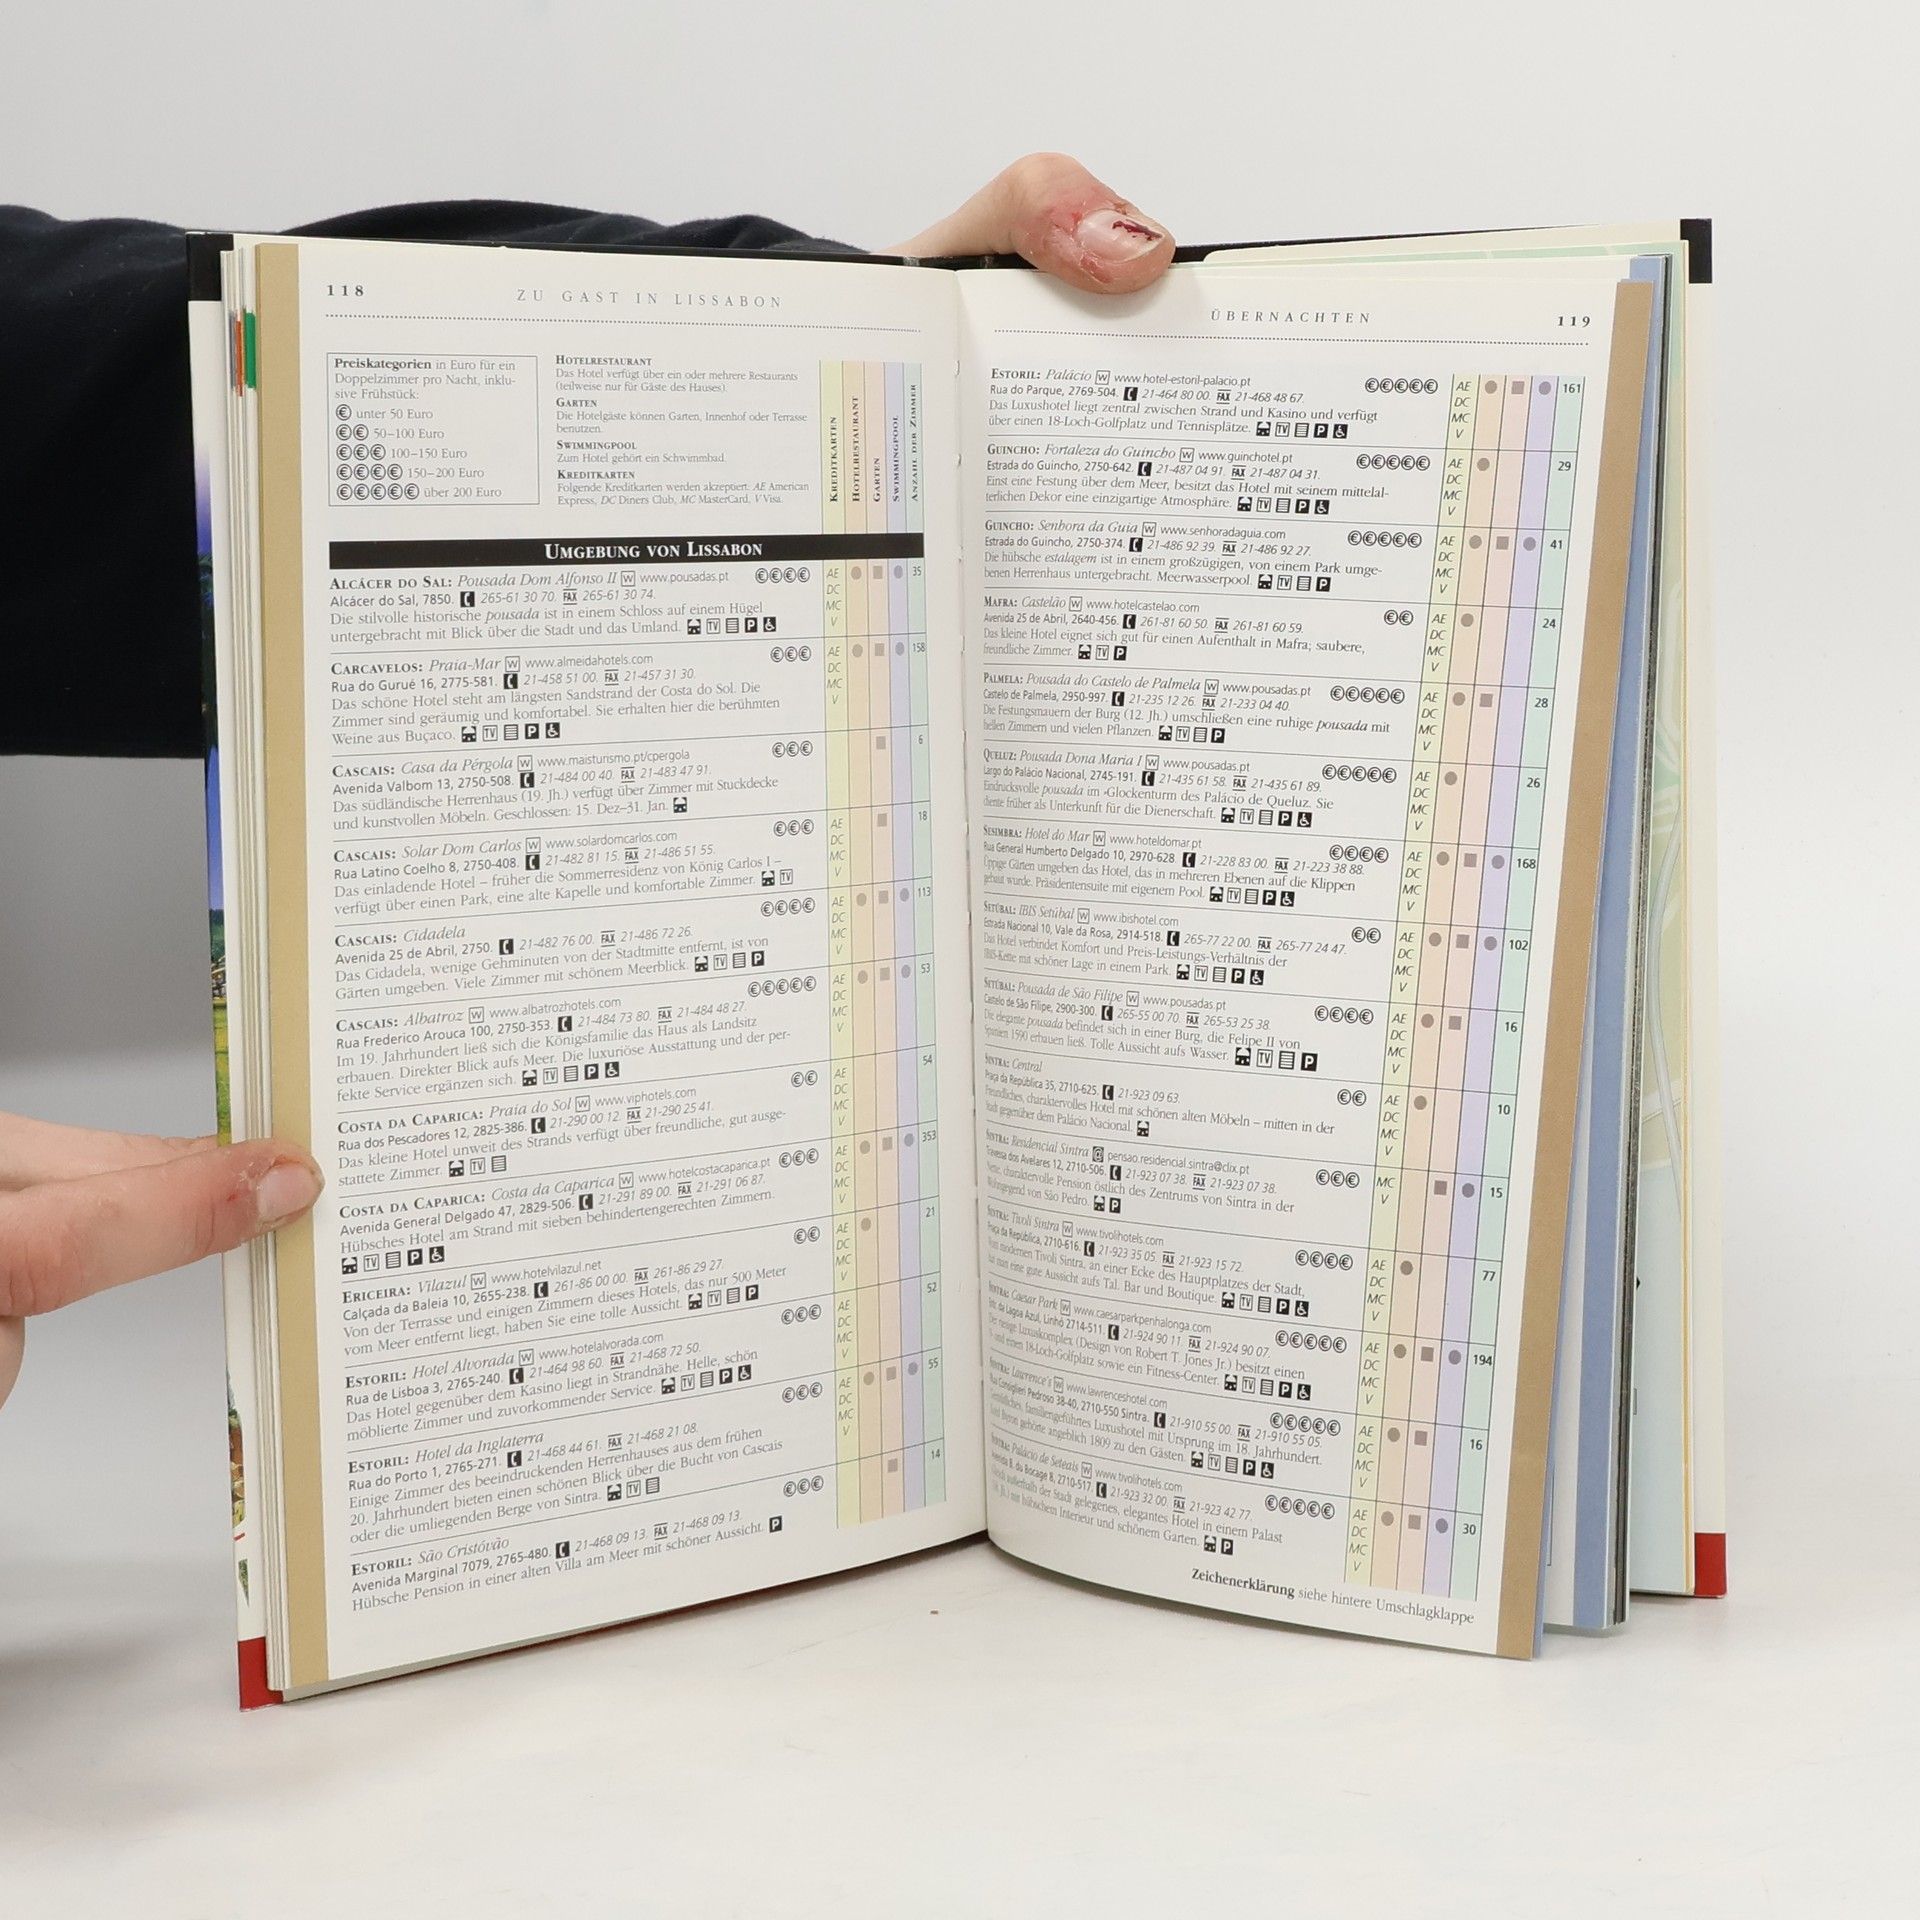 118
ZU GAST IN LISSABON
Preiskategorien in Euro für ein
Doppelzimmer pro Nacht, inklu-
sive Frühstück:
€ unter 50 Euro
€€ 50–100 Euro
€€€ 100–150 Euro
€€€€ 150–200 Euro
€€€€€ über 200 Euro
HOTELRESTAURANT
Das Hotel verfügt über ein oder mehrere Restaurants
(teilweise nur für Gäste des Hauses).
GARTEN
Die Hotelgäste können Garten, Innenhof oder Terrasse
benutzen.
SWIMMINGPOOL
Zum Hotel gehört ein Schwimmbad.
KREDITKARTEN
Folgende Kreditkarten werden akzeptiert: AE American
Express, DC Diners Club, MC MasterCard, V Visa.
KREDITKARTEN
HOTELRESTAURANT
GARTEN
SWIMMINGPOOL
ANZAHL DER ZIMMER
UMGEBUNG VON LISSABON
ALCÁCER DO SAL: Pousada Dom Alfonso II W www.pousadas.pt €€€€ AE DC MC V 35
Alcácer do Sal, 7850. 265-61 30 70. FAX 265-61 30 74.
Die stilvolle historische pousada ist in einem Schloss auf einem Hügel
untergebracht mit Blick über die Stadt und das Umland. TV P
CARCAVELOS: Praia-Mar W www.almeidahotels.com €€€ AE DC MC V 158
Rua do Gurué 16, 2775-581. 21-458 51 00. FAX 21-457 31 30.
Das schöne Hotel steht am längsten Sandstrand der Costa do Sol. Die
Zimmer sind geräumig und komfortabel. Sie erhalten hier die berühmten
Weine aus Buçaco. TV P
CASCAIS: Casa da Pérgola W www.maisturismo.pt/cpergola €€€ 6
Avenida Valbom 13, 2750-508. 21-484 00 40. FAX 21-483 47 91.
Das südländische Herrenhaus (19. Jh.) verfügt über Zimmer mit Stuckdecke
und kunstvollen Möbeln. Geschlossen: 15. Dez–31. Jan.
CASCAIS: Solar Dom Carlos W www.solardomcarlos.com €€€ AE DC MC V 18
Rua Latino Coelho 8, 2750-408. 21-482 81 15. FAX 21-486 51 55.
Das einladende Hotel – früher die Sommerresidenz von König Carlos I –
verfügt über einen Park, eine alte Kapelle und komfortable Zimmer. TV
CASCAIS: Cidadela €€€€ AE DC MC V 113
Avenida 25 de Abril, 2750. 21-482 76 00. FAX 21-486 72 26.
Das Cidadela, wenige Gehminuten von der Stadtmitte entfernt, ist von
Gärten umgeben. Viele Zimmer mit schönem Meerblick. TV P
CASCAIS: Albatroz W www.albatrozhotels.com €€€€€ AE DC MC V 53
Rua Frederico Arouca 100, 2750-353. 21-484 73 80. FAX 21-484 48 27.
Im 19. Jahrhundert ließ sich die Königsfamilie das Haus als Landsitz
erbauen. Direkter Blick aufs Meer. Die luxuriöse Ausstattung und der per-
fekte Service ergänzen sich. TV P
COSTA DA CAPARICA: Praia do Sol W www.viphotels.com €€ AE DC MC V 54
Rua dos Pescadores 12, 2825-386. 21-290 00 12. FAX 21-290 25 41.
Das kleine Hotel unweit des Strands verfügt über freundliche, gut ausge-
stattete Zimmer. TV
COSTA DA CAPARICA: Costa da Caparica W www.hotelcostacaparica.pt €€€ AE DC MC V 353
Avenida General Delgado 47, 2829-506. 21-291 89 00. FAX 21-291 06 87.
Hübsches Hotel am Strand mit sieben behindertengerechten Zimmern.
TV P
ERICEIRA: Vilazul W www.hotelvilazul.net €€ AE DC MC V 21
Calçada da Baleia 10, 2655-238. 261-86 00 00. FAX 261-86 29 27.
Von der Terrasse und einigen Zimmern dieses Hotels, das nur 500 Meter
vom Meer entfernt liegt, haben Sie eine tolle Aussicht. TV P
ESTORIL: Hotel Alvorada W www.hotelalvorada.com €€€ AE DC MC V 52
Rua de Lisboa 3, 2765-240. 21-464 98 60. FAX 21-468 72 50.
Das Hotel gegenüber dem Kasino liegt in Strandnähe. Helle, schön
möblierte Zimmer und zuvorkommender Service. TV P
ESTORIL: Hotel da Inglaterra €€€ AE DC MC V 55
Rua do Porto 1, 2765-271. 21-468 44 61. FAX 21-468 21 08.
Einige Zimmer des beeindruckenden Herrenhauses aus dem frühen
20. Jahrhundert bieten einen schönen Blick über die Bucht von Cascais
oder die umliegenden Berge von Sintra. TV
ESTORIL: São Cristóvão €€€ 14
Avenida Marginal 7079, 2765-480. 21-468 09 13. FAX 21-468 09 13.
Hübsche Pension in einer alten Villa am Meer mit schöner Aussicht. P
ÜBERNACHTEN
119
ESTORIL: Palácio W www.hotel-estoril-palacio.pt €€€€€ AE DC MC V 161
Rua do Parque, 2769-504. 21-464 80 00. FAX 21-468 48 67.
Das Luxushotel liegt zentral zwischen Strand und Kasino und verfügt
über einen 18-Loch-Golfplatz und Tennisplätze. TV P
GUINCHO: Fortaleza do Guincho W www.guinchotel.pt €€€€€ AE DC MC V 29
Estrada do Guincho, 2750-642. 21-487 04 91. FAX 21-487 04 31.
Einst eine Festung über dem Meer, besitzt das Hotel mit seinem mittelal-
terlichen Dekor eine einzigartige Atmosphäre. TV P
GUINCHO: Senhora da Guia W www.senhoradaguia.com €€€€€ AE DC MC V 41
Estrada do Guincho, 2750-374. 21-486 92 39. FAX 21-486 92 27.
Die hübsche estalagem ist in einem großzügigen, von einem Park umge-
benen Herrenhaus untergebracht. Meerwasserpool. TV P
MAFRA: Castelão W www.hotelcastelao.com €€ AE DC MC V 24
Avenida 25 de Abril, 2640-456. 261-81 60 50. FAX 261-81 60 59.
Das kleine Hotel eignet sich gut für einen Aufenthalt in Mafra; saubere,
freundliche Zimmer. TV P
PALMELA: Pousada do Castelo de Palmela W www.pousadas.pt €€€€€ AE DC MC V 28
Castelo de Palmela, 2950-997. 21-235 12 26. FAX 21-233 04 40.
Die Festungsmauern der Burg (12. Jh.) umschließen eine ruhige pousada mit
hellen Zimmern und vielen Pflanzen. TV P
QUELUZ: Pousada Dona Maria I W www.pousadas.pt €€€€€ AE DC MC V 26
Largo do Palácio Nacional, 2745-191. 21-435 61 58. FAX 21-435 61 89.
Eindrucksvolle pousada im ›Glockenturm des Palácio de Queluz. Sie
diente früher als Unterkunft für die Dienerschaft. TV P
SESIMBRA: Hotel do Mar W www.hoteldomar.pt €€€€ AE DC MC V 168
Rua General Humberto Delgado 10, 2970-628. 21-228 83 00. FAX 21-223 38 88.
Üppige Gärten umgeben das Hotel, das in mehreren Ebenen auf die Klippen
gebaut wurde. Präsidentensuite mit eigenem Pool. TV P
SETÚBAL: IBIS Setúbal W www.ibishotel.com €€ AE DC MC V 102
Estrada Nacional 10, Vale da Rosa, 2914-518. 265-77 22 00. FAX 265-77 24 47.
Das Hotel verbindet Komfort und Preis-Leistungs-Verhältnis der
IBIS-Kette mit schöner Lage in einem Park. TV P
SETÚBAL: Pousada de São Filipe W www.pousadas.pt €€€€ AE DC MC V 16
Castelo de São Filipe, 2900-300. 265-55 00 70. FAX 265-53 25 38.
Die elegante pousada befindet sich in einer Burg, die Felipe II von
Spanien 1590 erbauen ließ. Tolle Aussicht aufs Wasser. TV P
SINTRA: Central €€ AE DC MC V 10
Praça da República 35, 2710-625. 21-923 09 63.
Freundliches, charaktervolles Hotel mit schönen alten Möbeln – mitten in der
Stadt gegenüber dem Palácio Nacional.
SINTRA: Residencial Sintra @ pensao.residencial.sintra@clix.pt €€€ MC V 15
Travessa dos Avelares 12, 2710-506. 21-923 07 38. FAX 21-923 07 38.
Nette, charaktervolle Pension östlich des Zentrums von Sintra in der
Wohngegend von São Pedro. P
SINTRA: Tivoli Sintra W www.tivolihotels.com €€€€ AE DC MC V 77
Praça da República, 2710-616. 21-923 35 05. FAX 21-923 15 72.
Vom modernen Tivoli Sintra, an einer Ecke des Hauptplatzes der Stadt,
hat man eine gute Aussicht aufs Tal. Bar und Boutique. TV P
SINTRA: Caesar Park W www.caesarparkpenhalonga.com €€€€€ AE DC MC V 194
Estr. da Lagoa Azul, Linhó 2714-511. 21-924 90 11. FAX 21-924 90 07.
Der riesige Luxuskomplex (Design von Robert T. Jones Jr.) besitzt einen
und einen 18-Loch-Golfplatz sowie ein Fitness-Center. TV P
SINTRA: Lawrence's W www.lawrenceshotel.com €€€€€ AE DC MC V 16
Rua Consiglieri Pedroso 38-40, 2710-550 Sintra. 21-910 55 00. FAX 21-910 55 05.
Gemütliches, familiengeführtes Luxushotel mit Ursprung im 18. Jahrhundert.
Lord Byron gehörte angeblich 1809 zu den Gästen. TV P
SINTRA: Palácio de Seteais W www.tivolihotels.com €€€€€ AE DC MC V 30
Avenida B. du Bocage 8, 2710-517. 21-923 32 00. FAX 21-923 42 77.
außerhalb der Stadt gelegenes, elegantes Hotel in einem Palast
(18. Jh.) mit hübschem Interieur und schönem Garten. P
Zeichenerklärung siehe hintere Umschlagklappe